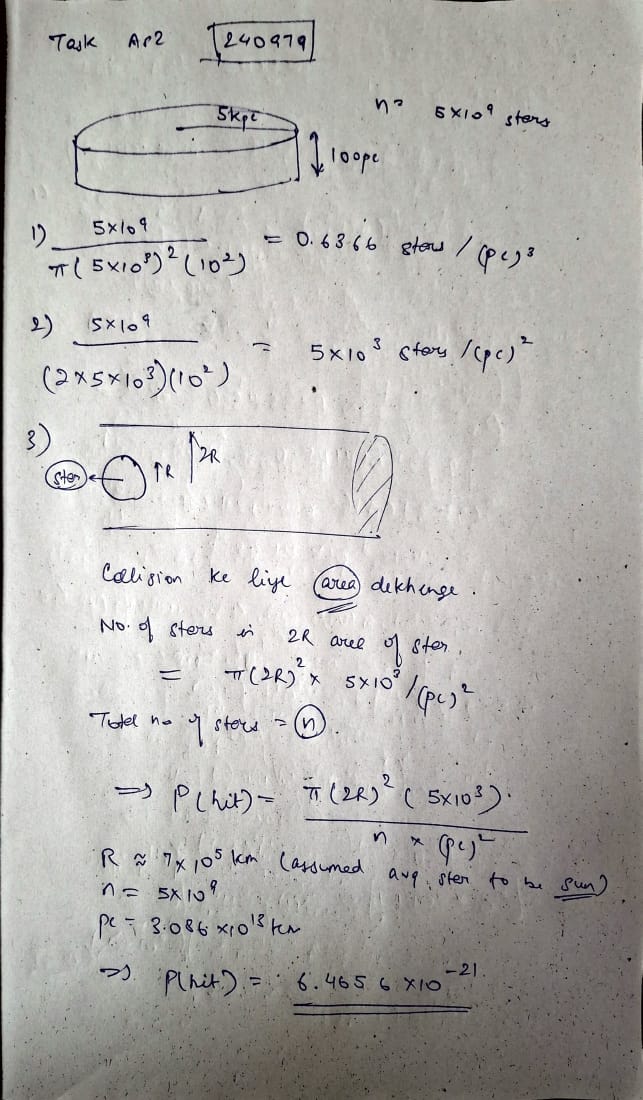 Task Ar2 240979
5kpc
n = 5×10⁹ stars
100pc
1) 5×10⁹ / π(5×10³)²(10²) = 0.6366 stars / (pc)³
2) 5×10⁹ / (2×5×10³)(10²) = 5×10³ stars /(pc)²
3)
star R 2R
Collision ke liye area dekhenge.
No. of stars in 2R area of star,
= π(2R)² × 5×10³/(pc)²
Total no of stars = n.
⇒ P(hit) = π(2R)² (5×10³). / n × (pc)²
R ≈ 7×10⁵ km (assumed avg. star to be sun)
n = 5×10⁹
pc = 3.086×10¹³ km
⇒ P(hit) = 6.4656×10⁻²¹